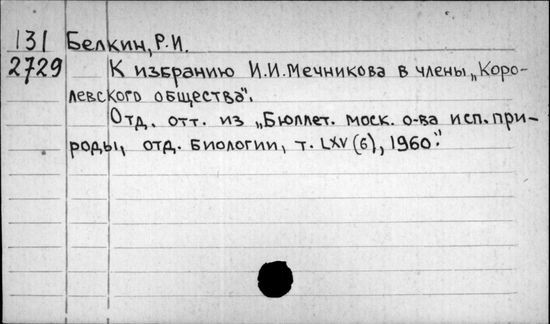 131 Белкин, Р.И.
2729 К избранию И.И.Мечникова в члены „Коро-
левского общества".
Отд. отт. из „Бюллет. моск. о-ва исп. при-
роды, отд. биологии, т. LXV (6), 1960."